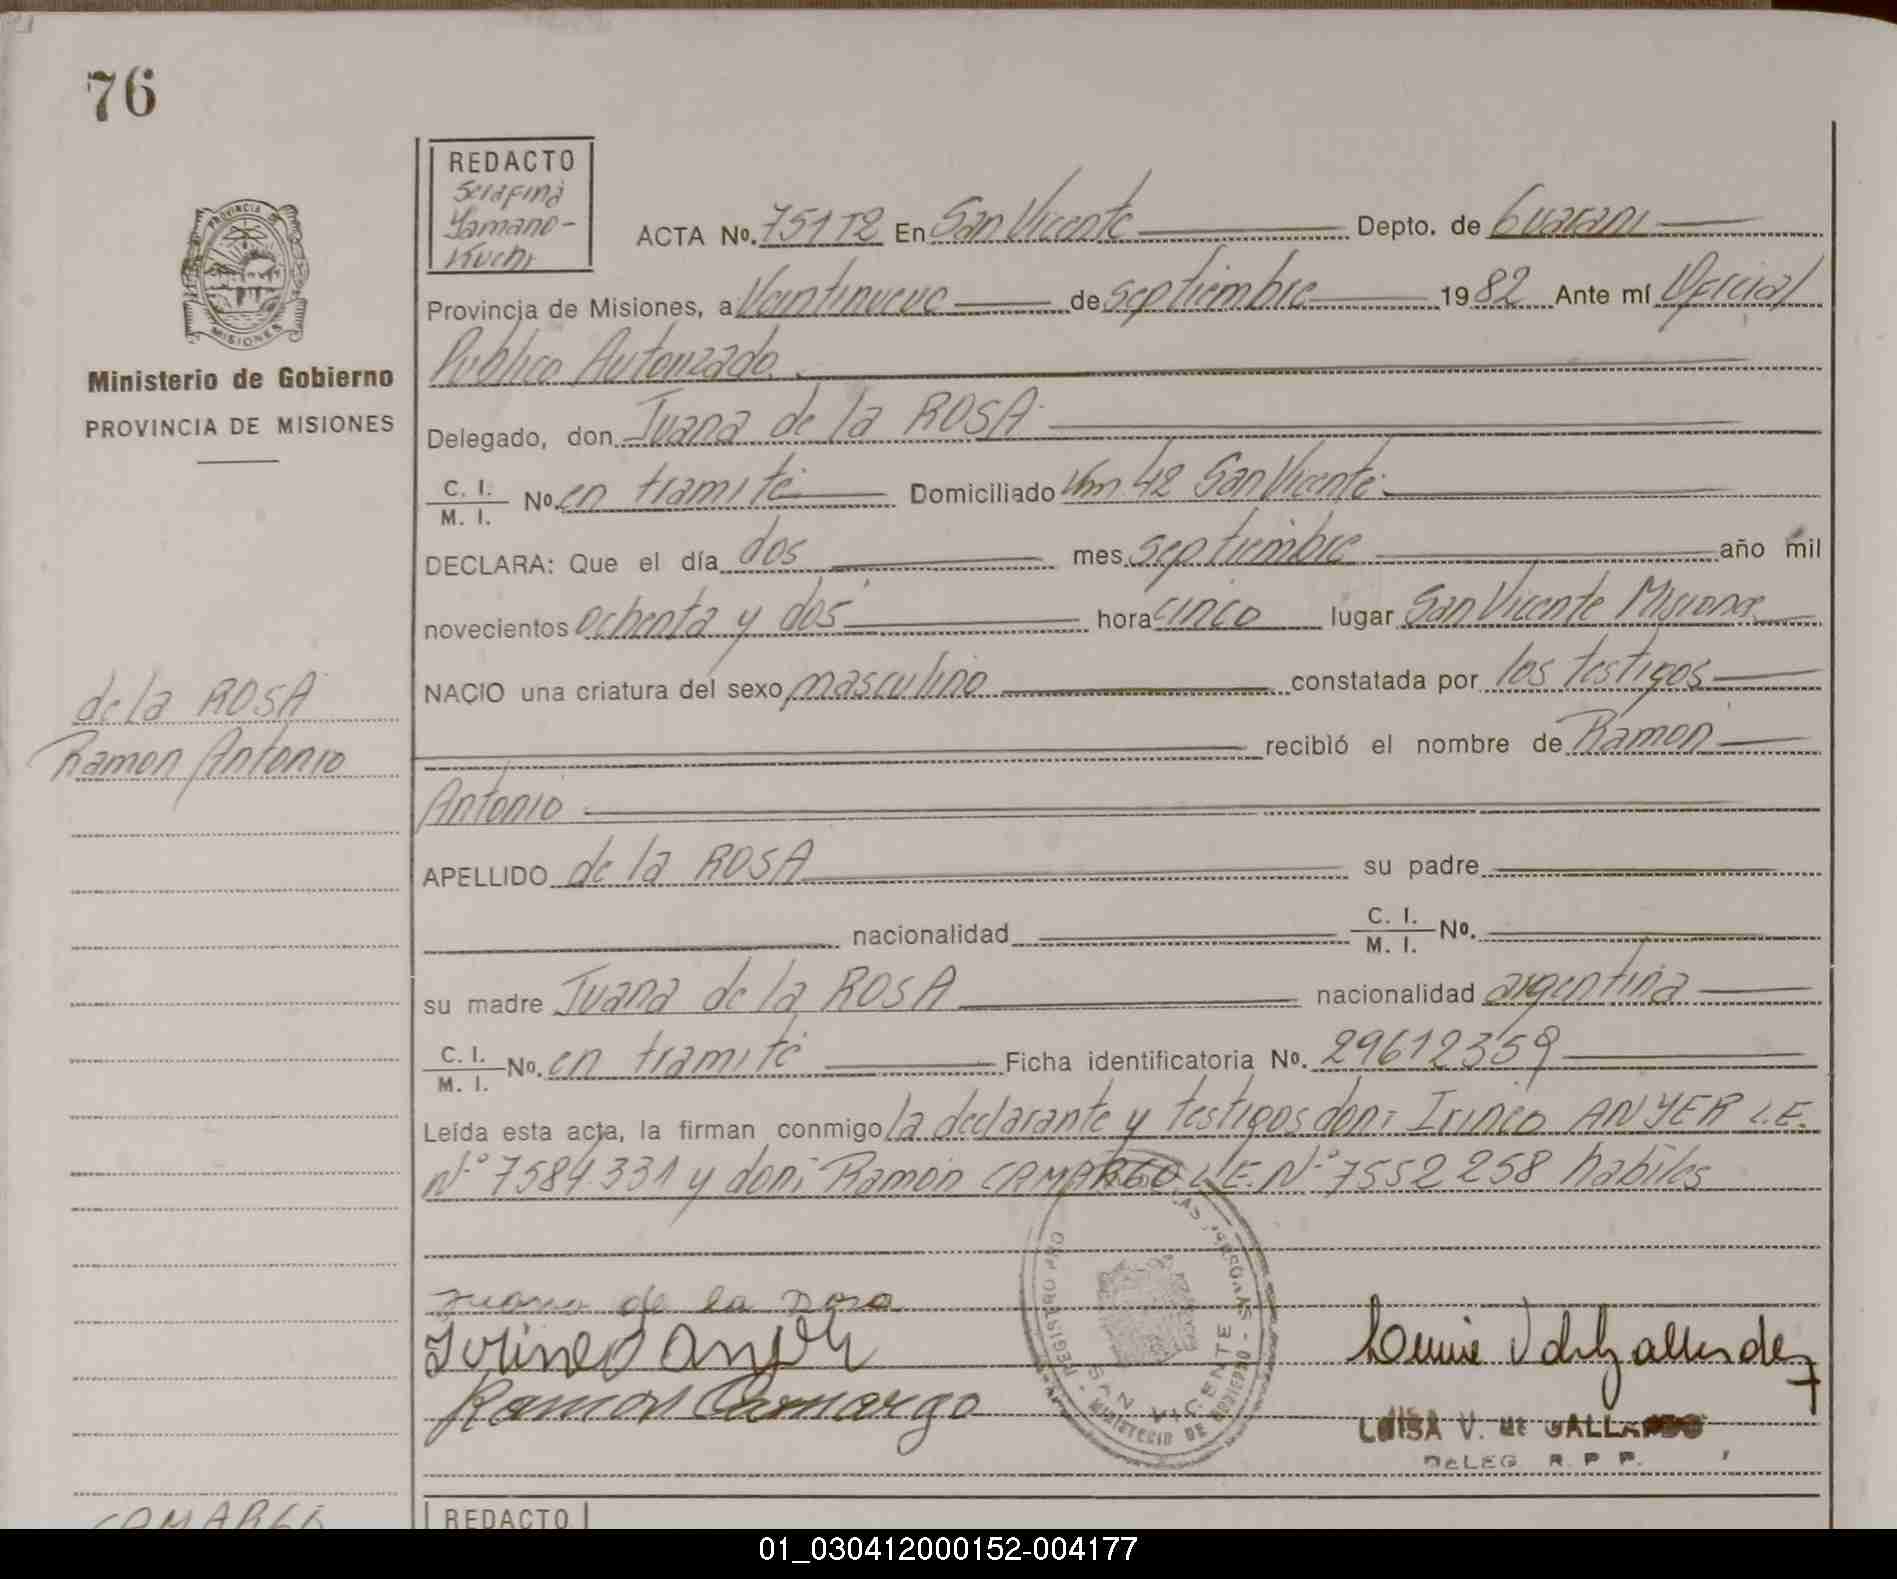 76
REDACTO
Serafina
Yamano-
Kuchi
PROVINCIA DE
MISIONES
Ministerio de Gobierno
PROVINCIA DE MISIONES
ACTA No. 751T2 En San Vicente Depto. de Guarani
Provincia de Misiones, a Veintinueve de septiembre 1982 Ante mí Oficial
Publico Autorizado.
Delegado, don Juana de la ROSA
C. I. / M. I. No. en tramite Domiciliado Km 42 San Vicente
DECLARA: Que el día dos mes septiembre año mil
novecientos ochenta y dos hora cinco lugar San Vicente Misiones
NACIO una criatura del sexo masculino constatada por los testigos
de la ROSA
Ramon Antonio
recibió el nombre de Ramon
Antonio
APELLIDO de la ROSA su padre
nacionalidad C. I. / M. I. No.
su madre Juana de la ROSA nacionalidad argentina
C. I. / M. I. No. en tramite Ficha identificatoria No. 29612359
Leída esta acta, la firman conmigo la declarante y testigos don: Irineo ANYER L.E.
N° 7584.331 y don: Ramon CAMARGO L.E. N° 7552258 habiles
juana de la rosa
Ramon Camargo
REGISTRO
DE LAS PERSONAS
SAN VICENTE
MINISTERIO DE GOBIERNO
LUISA V. DE GALLARDO
DELEG. R. P. P.
CAMARGO
REDACTO
01_030412000152-004177